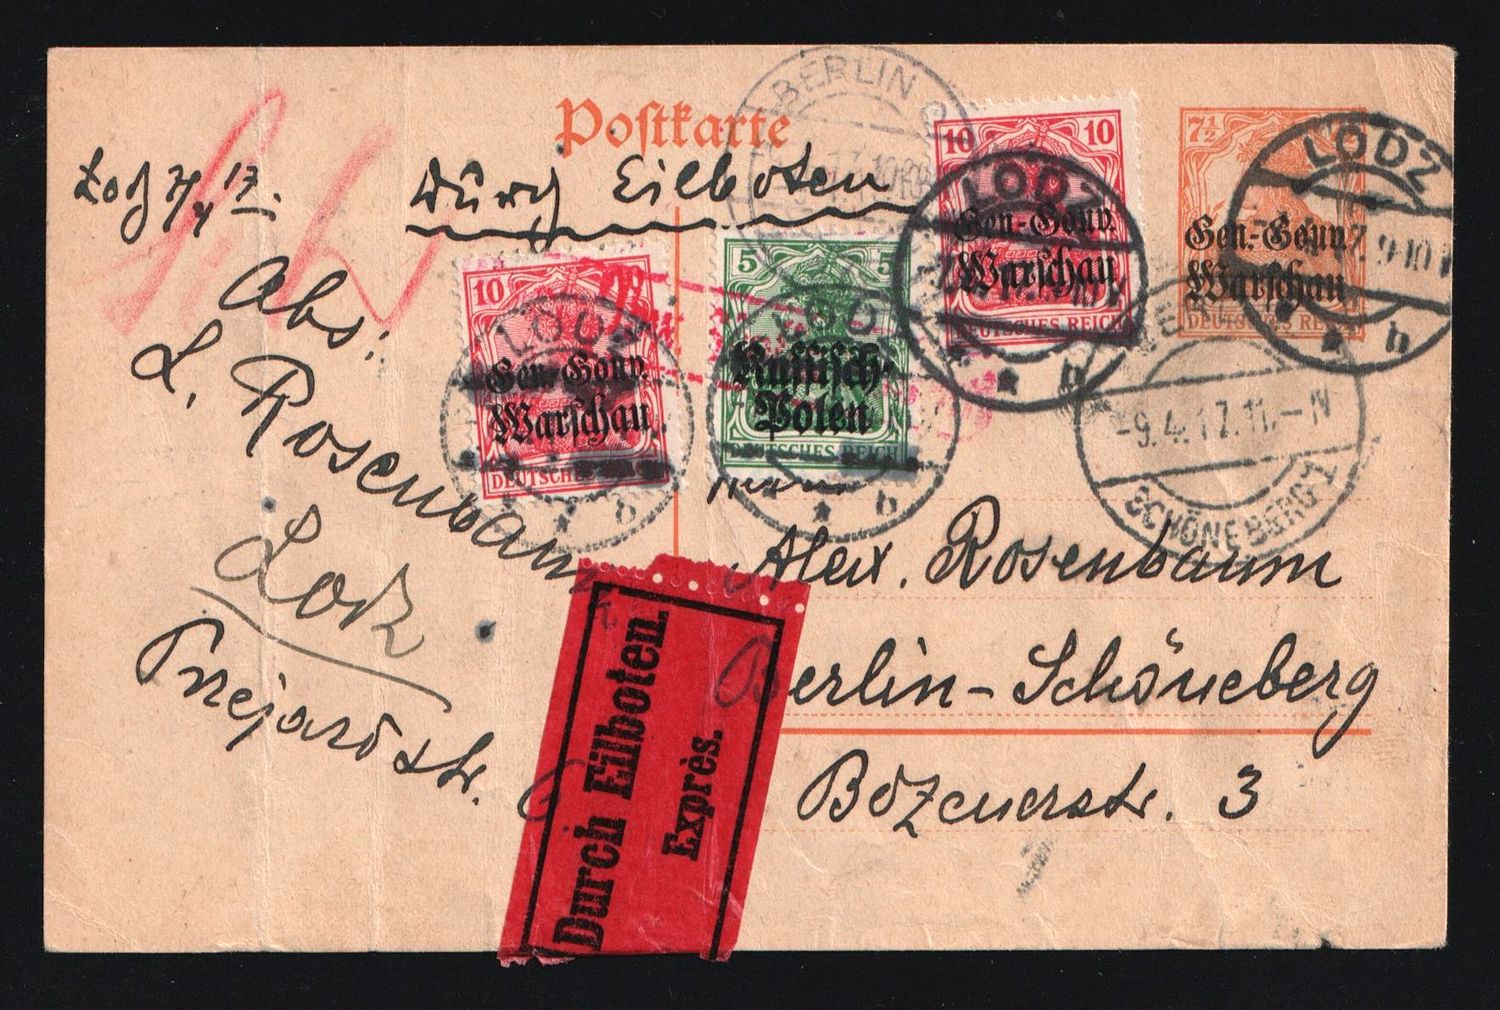 Postkarte
Lodz 7/4 17.
Durch Eilboten
Abs:
L. Rosenbaum
Lodz
BERLIN
10
DEUTSCHES
LODZ
Gen.-Gouv.
Warschau.
b
5 5
Russisch-
Polen
DEUTSCHES REICH
b
10 10
LODZ
Gen.-Gouv.
Warschau
DEUTSCHES REICH
b
7½
Gen.-Gouv.
Warschau
DEUTSCHES REICH
LODZ
b
-9.4.17.11.-N
SCHÖNEBERG 1
Alex. Rosenbaum
Berlin-Schöneberg
Bozenerstr. 3
Durch Eilboten.
Exprès.